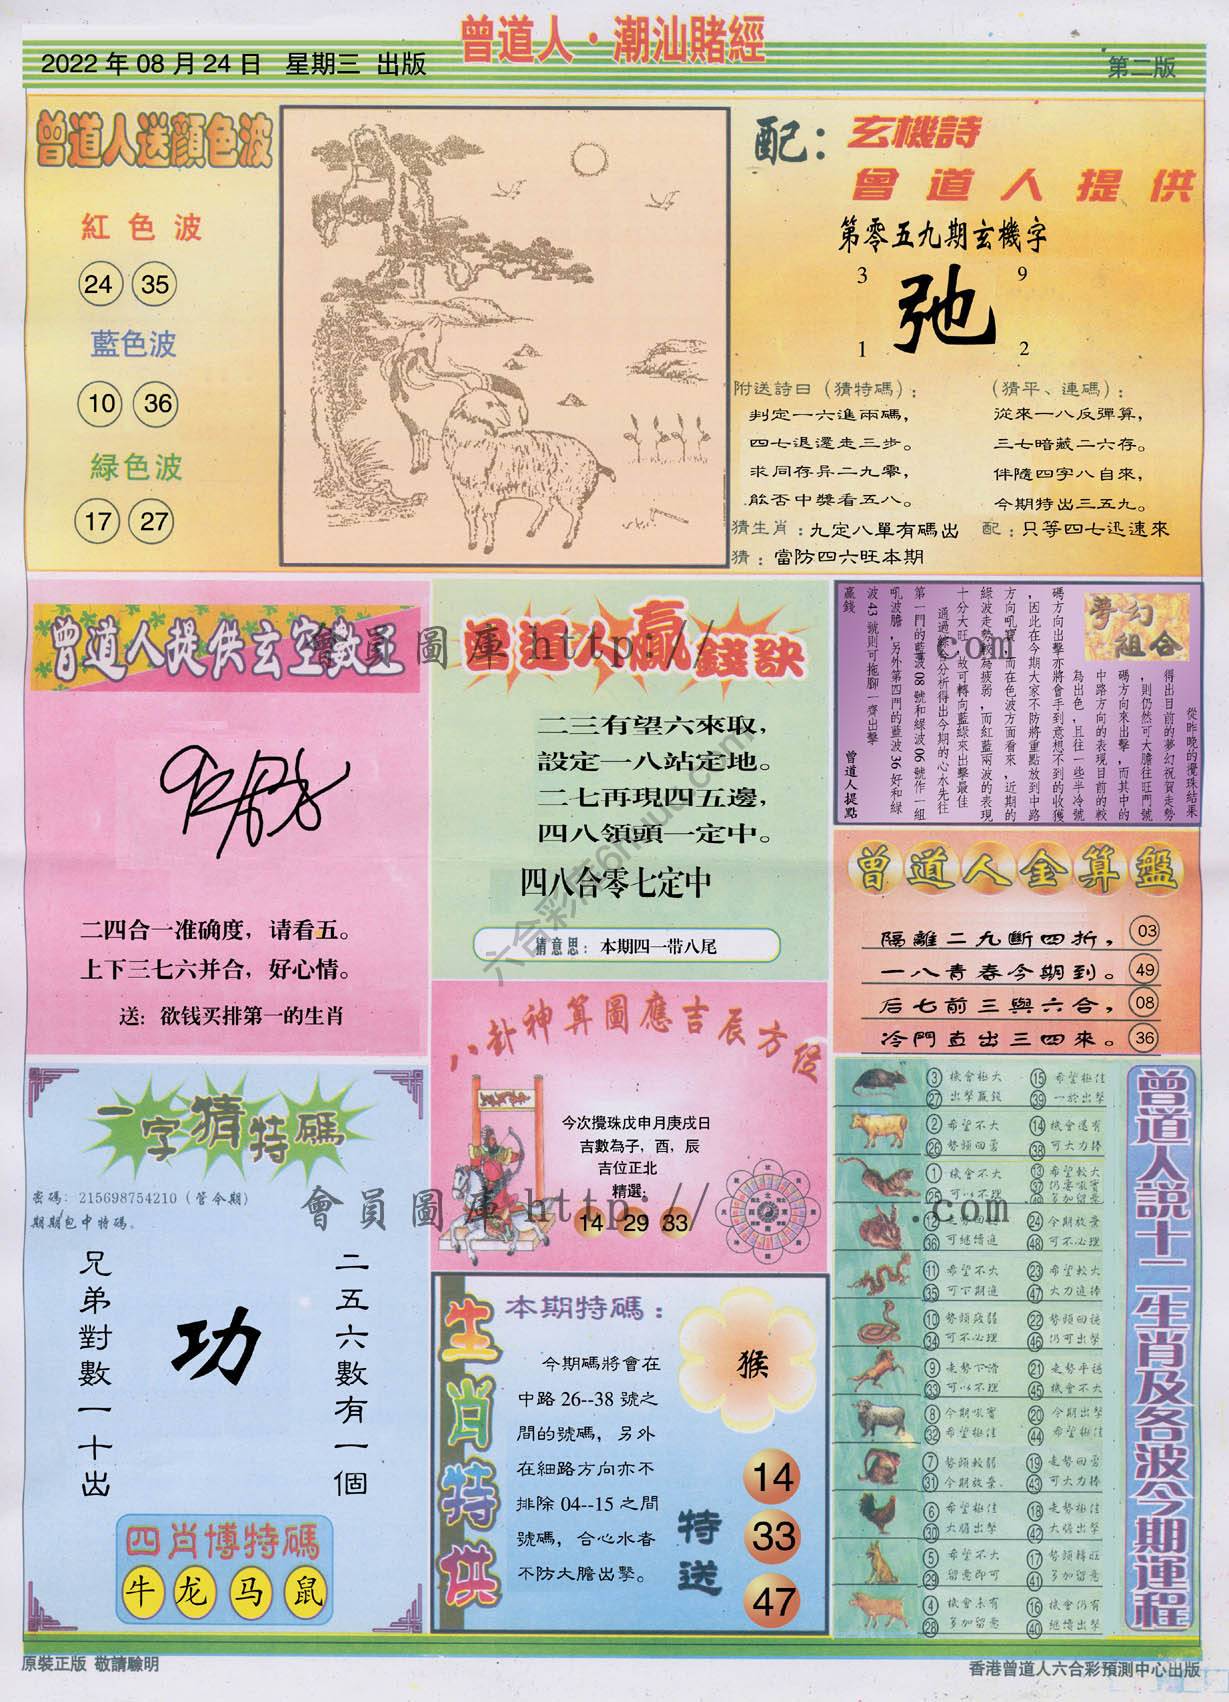 曾道人·潮汕賭經
2022 年 08 月 24 日 星期三 出版
第二版
曾道人送顔色波
紅色波
24 35
藍色波
10 36
緑色波
17 27
配：玄機詩
曾道人提供
第零五九期玄機字
3 9
弛
1 2
附送詩曰（猜特碼）：
判定一六進兩碼，
四七退還走三步。
求同存异二九零，
能否中獎看五八。
（猜平、連碼）：
從來一八反彈算，
三七暗藏二六存。
伴隨四字八自來，
今期特出三五九。
猜生肖：九定八單有碼出 配：只等四七迅速來
猜：當防四六旺本期
曾道人提供玄空數王
二四合一准确度，请看五。
上下三七六并合，好心情。
送：欲钱买排第一的生肖
曾道人贏錢訣
二三有望六來取，
設定一八站定地。
二七再現四五邊，
四八領頭一定中。
四八合零七定中
猜意思：本期四一带八尾
夢幻組合
從昨晚的攪珠結果
得出目前的夢幻祝賀走勢
，則仍然可大膽往旺門號
碼方向來出擊，而其中的
中路方向的表現目前的較
為出色，且往一些半冷號
碼方向出擊亦將會手到意想不到的收獲
，因此在今期大家不防將重點放到中路
方向吼寶，而在色波方面看來，近期的
綠波走勢較為疲弱，而紅藍兩波的表現
十分大旺，故可轉向藍綠來出擊最佳
通過綜合分析得出今期的心水先往
第一門的藍波 08 號和綠波 06 號作一組
吼波膽，另外第四門的藍波 36 好和綠
波 43 號則可拖腳一齊出擊
贏錢
曾道人提點
曾道人金算盤
隔離二九斷四折， 03
一八青春今期到。 49
后七前三與六合， 08
冷門直出三四來。 36
八卦神算圖應吉辰方位
今次攪珠戊申月庚戌日
吉數為子，酉，辰
吉位正北
精選：
14 29 33
會員圖庫 http://
.com
會員圖庫 http://
.com
一字猜特碼
密碼：215698754210（管今期）
期期包中特碼。
二五六數有一個
功
兄弟對數一十出
四肖博特碼
牛 龙 马 鼠
生肖特供
本期特碼：
今期碼將會在
中路 26--38 號之
間的號碼，另外
在細路方向亦不
排除 04--15 之間
號碼，合心水者
不防大膽出擊。
猴
特送
14
33
47
曾道人説十二生肖及各波今期運程
3 機會極大 15 希望極佳
27 出擊贏錢 39 一於出擊
2 希望不大 14 機會還有
26 勢頭回勇 38 可大力捧
1 機會不大 13 希望較大
25 可以不理 37 仍要吼實
49 多加留意
12 走勢回 24 今期放棄
36 可繼續進 48 可不必理
11 希望不大 23 希望較大
35 可下期進 47 大力進捧
10 勢頭疲弱 22 勢頭回穩
34 可不必理 46 仍可出擊
9 走勢下滑 21 走勢平穩
33 可以不理 45 機會不大
8 今期吼實 20 今期出擊
32 希望極佳 44 希望極佳
7 勢頭較弱 19 走勢回勇
31 今期放棄、 43 可大力捧
6 希望極佳 18 走勢極佳
30 大膽出擊 42 大膽出擊
5 希望不大 17 勢頭轉旺
29 留意即可 41 多加留意
4 機會未有 16 機會仍有
28 多加留意 40 繼續出擊
原裝正版 敬請驗明
香港曾道人六合彩預測中心出版